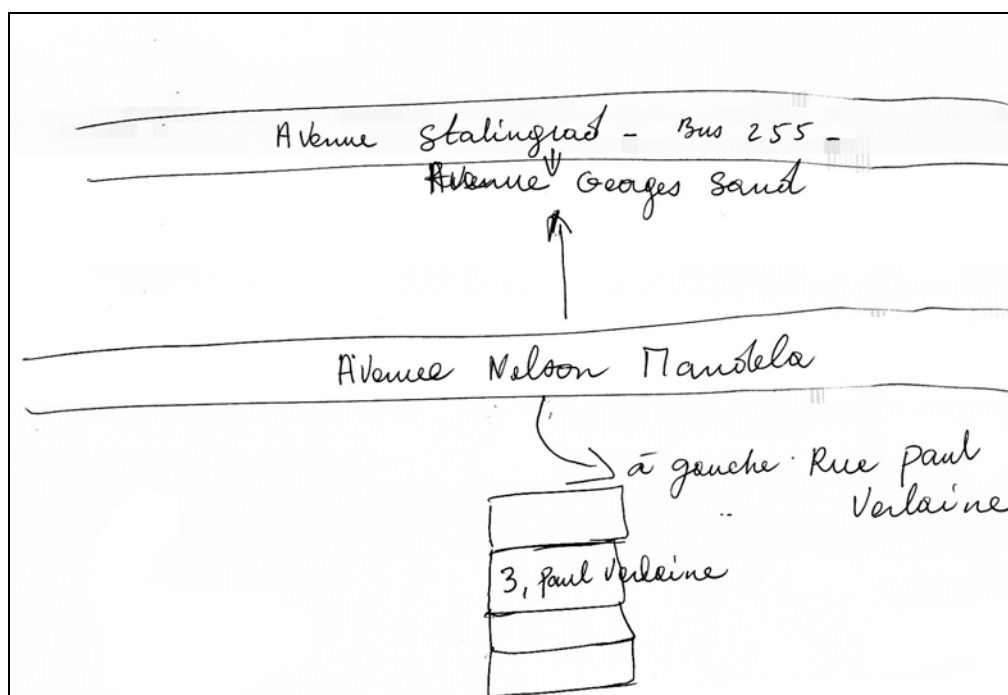 Avenue Stalingrad - Bus 255 -
Avenue Georges Sand
Avenue Nelson Mandela
à gauche. Rue Paul
Verlaine
3, Paul Verlaine